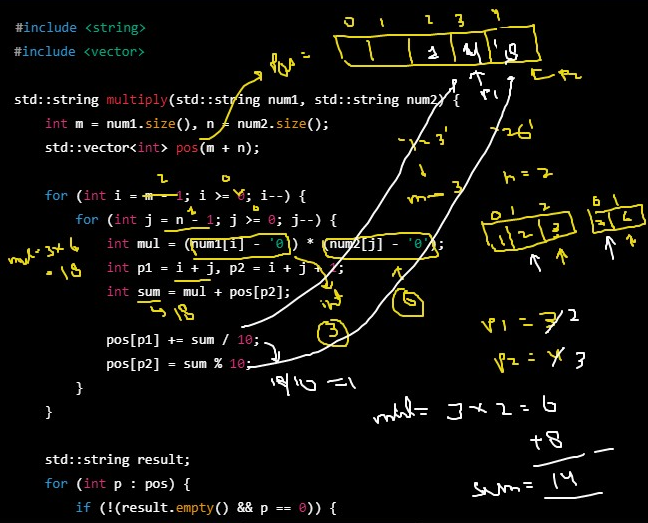 0 1 2 3 4
#include <string>
#include <vector>
pos =
1 4 8
P1
P2
std::string multiply(std::string num1, std::string num2) {
int m = num1.size(), n = num2.size();
std::vector<int> pos(m + n);
'3'
'6'
m = 3
n = 2
2 0
for (int i = m - 1; i >= 0; i--) {
1 0
for (int j = n - 1; j >= 0; j--) {
0 1 2
0 1
1 2 3
2 6
int mul = (num1[i] - '0') * (num2[j] - '0');
mul = 3 x 6
= 18
int p1 = i + j, p2 = i + j + 1;
int sum = mul + pos[p2];
18
int
3
6
P1 = 3 2
P2 = 4 3
pos[p1] += sum / 10;
pos[p2] = sum % 10;
18/10 = 1
}
}
mul = 3 x 2 = 6
+8
sum = 14
std::string result;
for (int p : pos) {
if (!(result.empty() && p == 0)) {